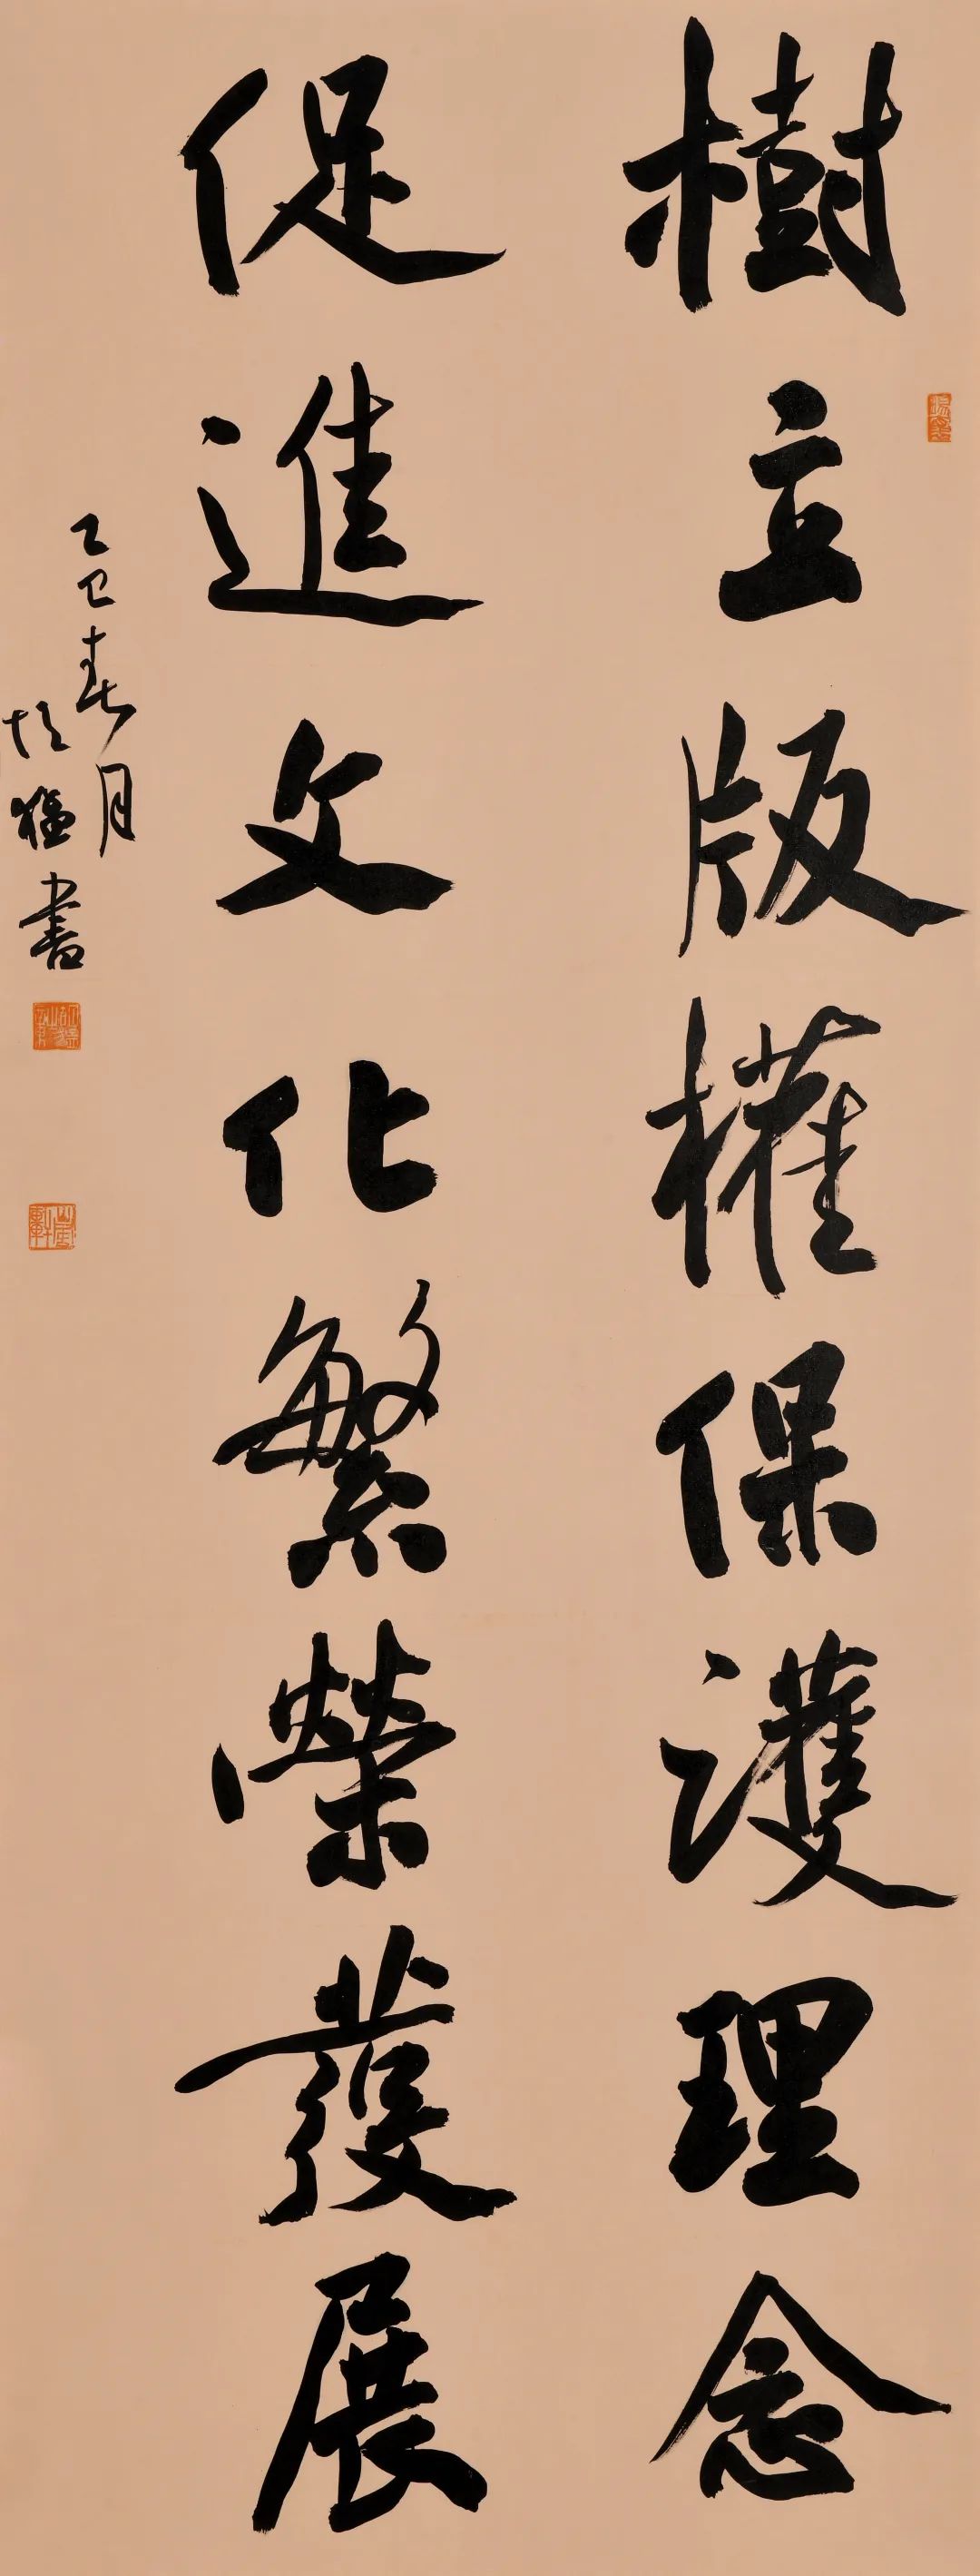 樹立版權保護理念
促進文化繁榮發展
乙巳春月
猛書